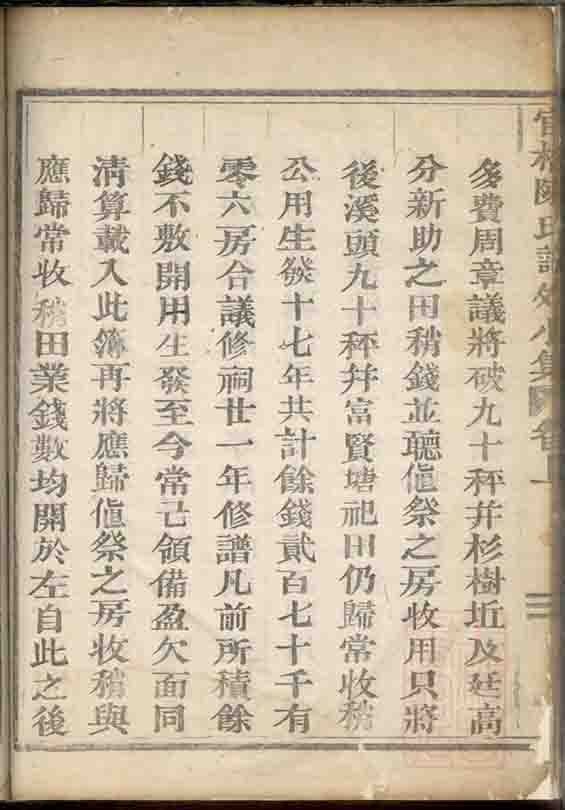 陳氏譜外小集
多費周章議將破九十秤并杉樹坵及廷高
分新助之田稍錢並聽値祭之房收用只將
後溪頭九十秤并富賢塘祀田仍歸常收稍
公用生發十七年共計餘錢貳百七十千有
零六房合議修祠廿一年修譜凡前所積餘
錢不敷開用生發至今常己領備盈欠面同
清算載入此簿再將應歸値祭之房收稍與
應歸常收稍田業錢數均開於左自此之後